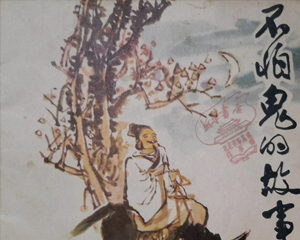 不怕鬼的故事